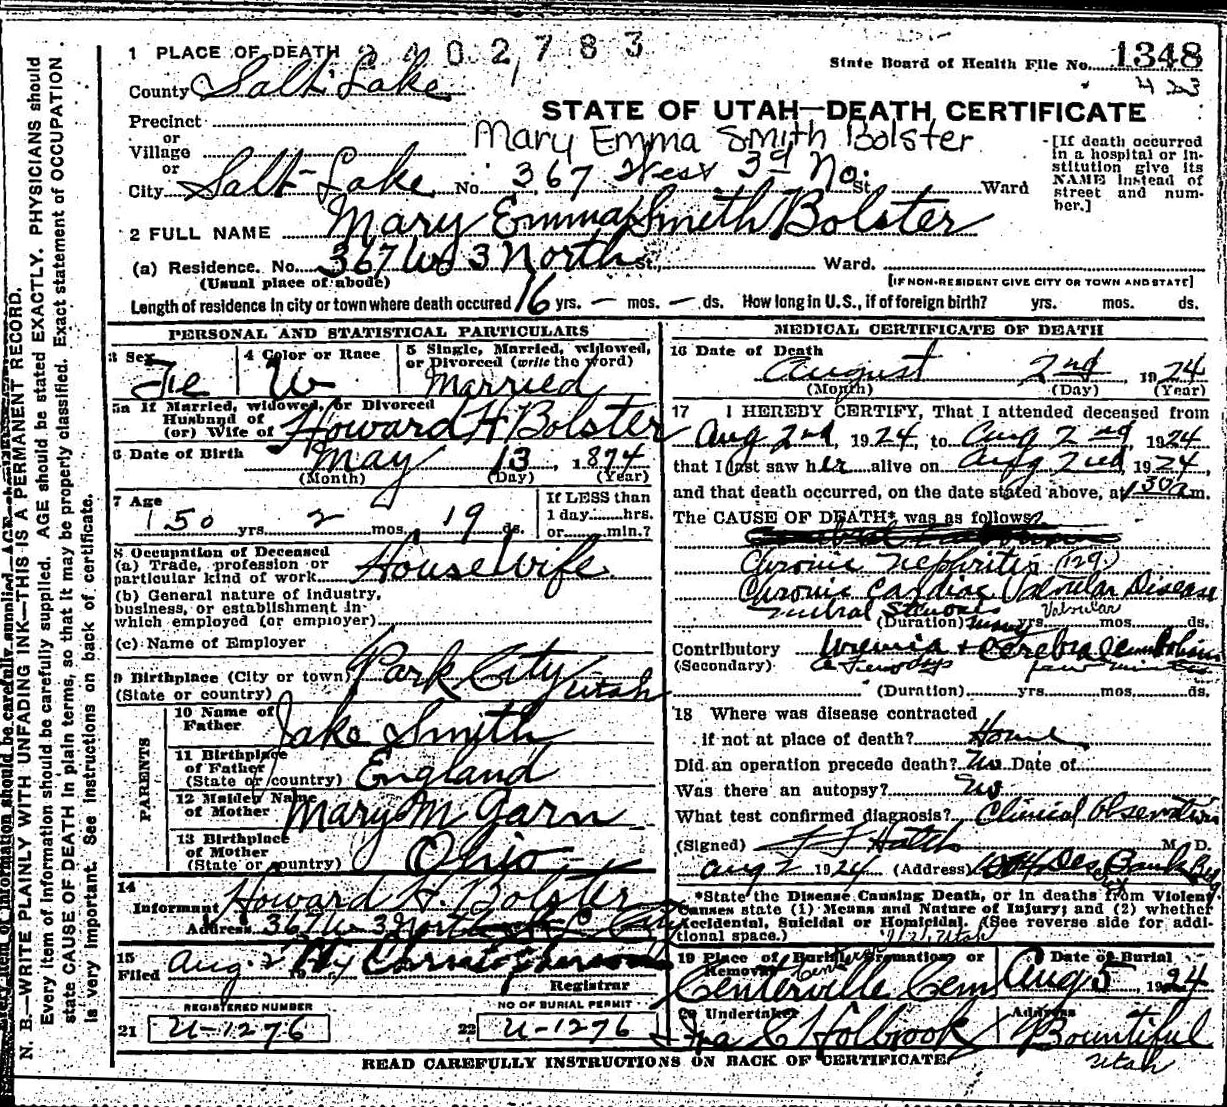 1 PLACE OF DEATH 2 4 0 2 7 8 3
State Board of Health File No. 1348
423
County Salt Lake
STATE OF UTAH—DEATH CERTIFICATE
Precinct
Mary Emma Smith Bolster
or
Village
or
City Salt Lake No. 367 West 3rd No. St. Ward
[If death occurred in a hospital or institution give its NAME instead of street and number.]
2 FULL NAME Mary Emma Smith Bolster
(a) Residence. No. 367 W 3 North St., Ward.
(Usual place of abode) [IF NON-RESIDENT GIVE CITY OR TOWN AND STATE]
Length of residence in city or town where death occured 16 yrs. — mos. — ds. How long in U.S., if of foreign birth? yrs. mos. ds.
PERSONAL AND STATISTICAL PARTICULARS
3 Sex Fe
4 Color or Race W
5 Single, Married, widowed, or Divorced (write the word) Married
5a If Married, widowed, or Divorced
Husband of
(or) Wife of Howard H Bolster
6 Date of Birth May 13, 1874
(Month) (Day) (Year)
7 Age 50 yrs. 2 mos. 19 ds.
If LESS than
1 day......hrs.
or......min.?
8 Occupation of Deceased
(a) Trade, profession or
particular kind of work Housewife
(b) General nature of industry,
business, or establishment in-
which employed (or employer)
(c) Name of Employer
9 Birthplace (City or town) Park City
(State or country) Utah
PARENTS
10 Name of
Father Jake Smith
11 Birthplace
of Father
(State or country) England
12 Maiden Name
of Mother Mary M Garn
13 Birthplace
of Mother
(State or country) Ohio
14
Informant Howard H. Bolster
Address 367 W 3 North
15
Filed Aug. 2
Registrar
REGISTERED NUMBER
21 U-1276
NO OF BURIAL PERMIT
22 U-1276
MEDICAL CERTIFICATE OF DEATH
16 Date of Death August 2nd 1924
(Month) (Day) (Year)
17 I HEREBY CERTIFY, That I attended deceased from
Aug 2nd, 1924, to Aug 2nd, 1924
that I last saw her alive on Aug 2nd, 1924,
and that death occurred, on the date stated above, at 130 a m.
The CAUSE OF DEATH* was as follows?
Chronic Nephritis (129)
Chronic Cardiac Valvular Disease
Mitral Stenosis Valvular
(Duration) many yrs. mos. ds.
Contributory Uremia + Cerebral Embolism
(Secondary) a few days few minutes
(Duration) yrs. mos. ds.
18 Where was disease contracted
if not at place of death? Home
Did an operation precede death? No Date of
Was there an autopsy? No
What test confirmed diagnosis? Clinical Observation
(Signed) Hatch M. D.
Aug 2 1924 (Address) Des Bank Bldg
*State the Disease Causing Death, or in deaths from Violent
Causes state (1) Means and Nature of Injury; and (2) whether
Accidental, Suicidal or Homicidal. (See reverse side for addi-
tional space.)
19 Place of Burial, Cremation or
Removal Centerville Cem
Date of Burial
Aug 5, 1924
20 Undertaker Ira C Holbrook
Address Bountiful
Utah
READ CAREFULLY INSTRUCTIONS ON BACK OF CERTIFICATE
N. B.—WRITE PLAINLY WITH UNFADING INK—THIS IS A PERMANENT RECORD.
Every item of information should be carefully supplied. AGE should be stated EXACTLY. PHYSICIANS should
state CAUSE OF DEATH in plain terms, so that it may be properly classified. Exact statement of OCCUPATION
is very important. See instructions on back of certificate.